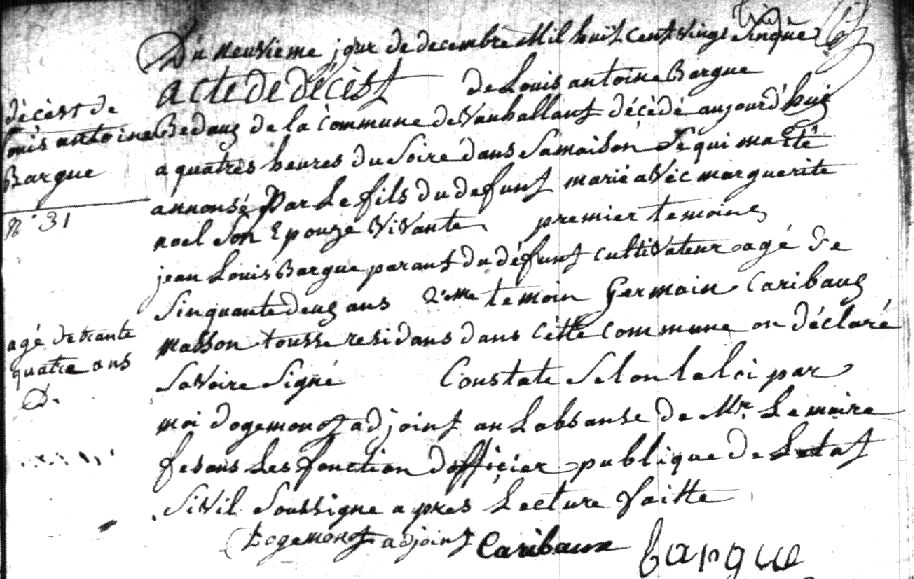 Du neuvieme jour de decembre Mil huit cent vingt sinque
acte de décest de Louis antoine Bargue
décest de
Louis antoine
Bargue
N° 31
Bedaus de la commune de Vauhallant décédé aujourd'huis
a quatres heures du Soire dans Samaison Se qui ma été
annonsé Par Le fils du defunt marié avéc marguerite
noel Son Epouze ViVante premier temoins
jean Louis Bargue parant du défunt cultivateur agé de
Sinquante deus ans 2.eme temoin Germain Caribaus
masson tousse residans dans cette commune on déclaré
agé de trante
quatre ans
D.
Savoire Signé Constate Selon la loi par
moi Dogemont adjoint an Labsanse de Mr. Le maire
fesans Les fonction dofficier publique de Letat
SiVil Soussigne apres Lecture faitte
Dogemont adjoint Caribaux Bargue